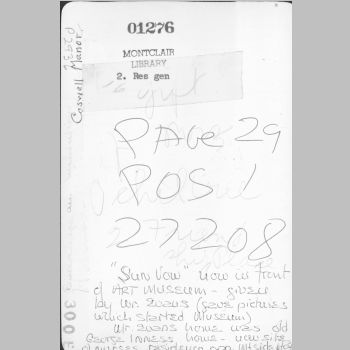 01276
MONTCLAIR
LIBRARY
2. Res gen
Coswell Manor
PAGE 29
POS 1
27208
"Sun Vow" now in front
of ART MUSEUM - given
by Mr. Evans (gave pictures
which started Museum)
Mr. Evans home was old
George Inness home - now site